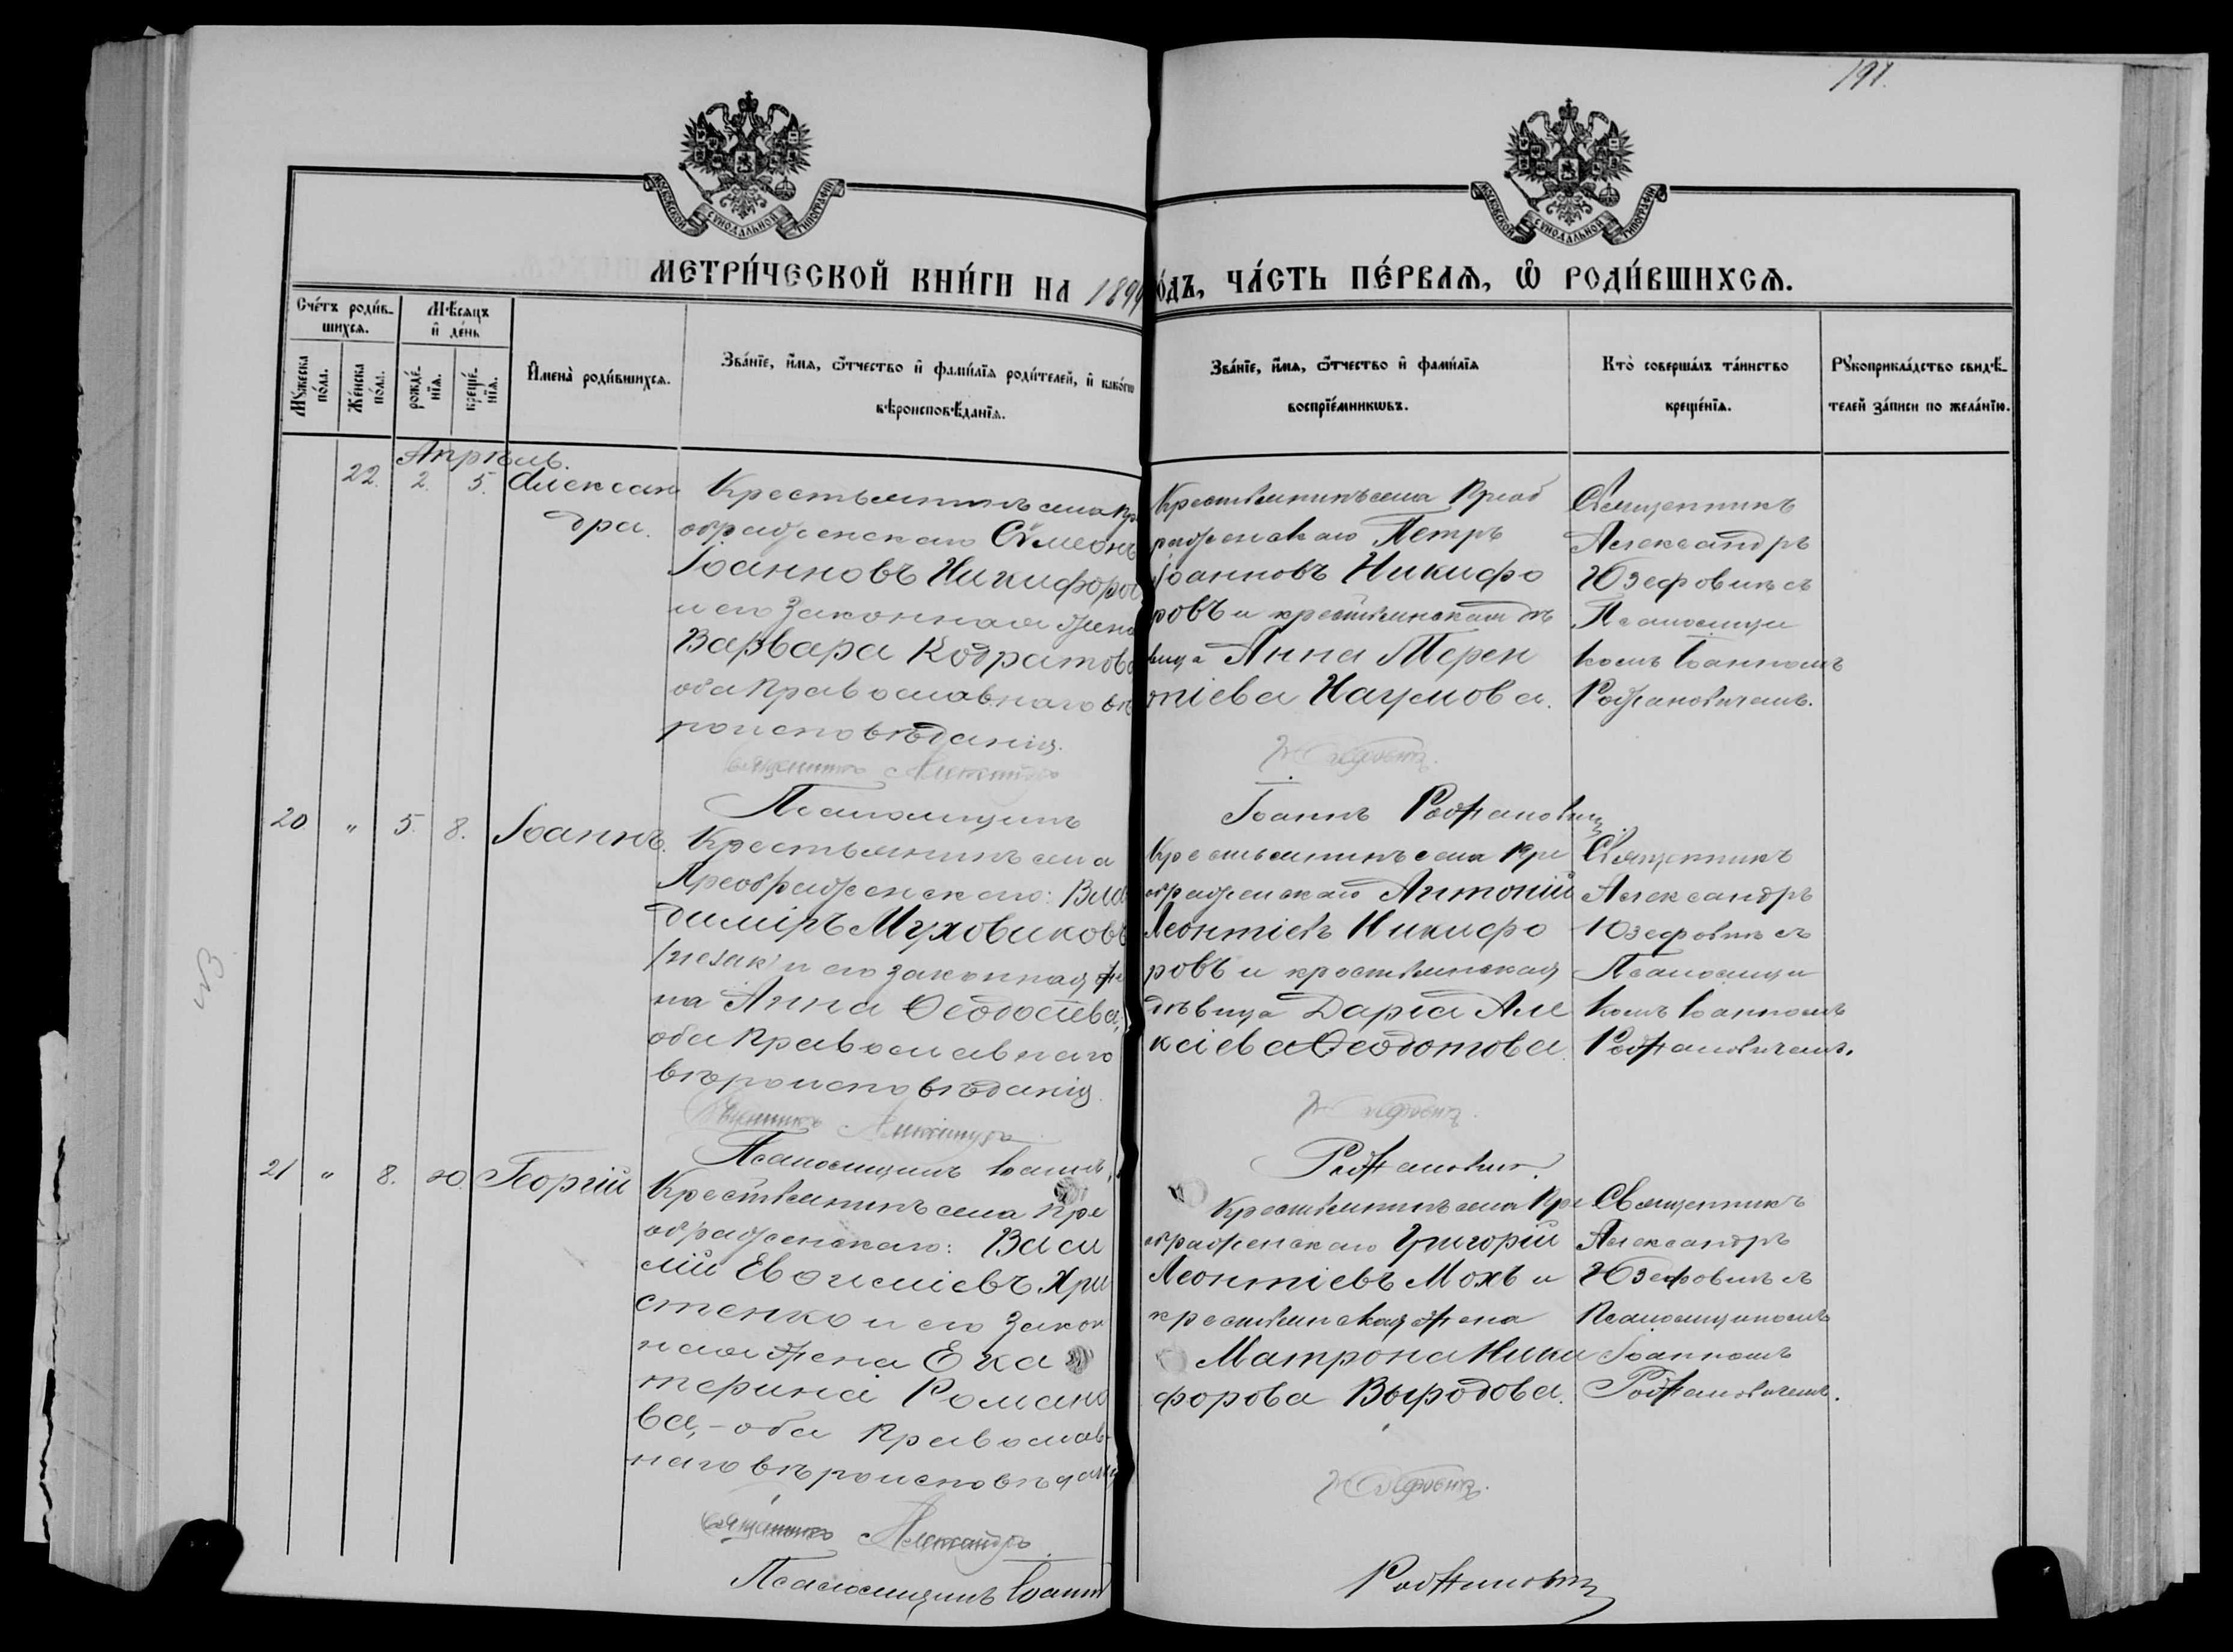 191.
МОСКОВСКОЙ СѴНОДАЛЬНОЙ ТИПОГРАФІИ
МОСКОВСКОЙ СѴНОДАЛЬНОЙ ТИПОГРАФІИ
МЕТРИ́ЧЕСКОЙ КНИ́ГИ НА 1899 го́дъ, ЧА́СТЬ ПЕ́РВАѦ, Ѡ҆ РОДИ́ВШИХСѦ.
Сче́тъ роди́в-
шихсѧ.
Мѣ́сѧцъ
и҆ де́нь
Мꙋ́жеска
по́ла.
Же́нска
по́ла.
рожде́-
нїѧ.
креще́-
нїѧ.
И҆мена̀ роди́вшихсѧ.
Зва́нїе, и҆́мѧ, ѻ҆́тчество и҆ фами́лїѧ роди́телей, и҆ како́гѡ
вѣроисповѣ́данїѧ.
Зва́нїе, и҆́мѧ, ѻ҆́тчество и҆ фами́лїѧ
воспрїе́мникѡвъ.
Кто̀ соверша́лъ та́инство
креще́нїѧ.
Рꙋкоприкла́дство свидѣ́-
телей за́писи по жела́нїю.
Апрѣль.
22. 2. 5. Алексан
дра.
Крестьянинъ села Пре
ображенскаго Сѵмеонъ
Іоанновъ Никифоров
и его законная жена
Варвара Кодратова
оба Православнаго вѣ
роисповѣданія.
Священникъ Александръ
Псаломщикъ
Крестьянинъ села Преоб
раженскаго Петръ
Іоанновъ Никифо
ровъ и крестьянская дѣ
вица Анна Терен
тіева Наумова.
Юзефовичъ.
Іоаннъ Рожановичъ
Священникъ
Александръ
Юзефовичъ съ
Псаломщи
комъ Іоанномъ
Рожановичемъ.
20 " 5. 8. Іоаннъ.
Крестьянинъ села
Преображенскаго: Вла
димиръ Муховиковъ
/незак/ и его законная же
на Анна Ѳеодосіева,
оба Православнаго
вѣроисповѣданія.
Священникъ Александръ
Псаломщикъ Іоаннъ
Крестьянинъ села Пре
ображенскаго Антоній
Леонтіевъ Никифо
ровъ и крестьянская
дѣвица Дарія Але
ксіева Ѳеодотова.
Юзефовичъ.
Рожановичъ.
Священникъ
Александръ
Юзефовичъ съ
Псаломщи
комъ Іоанномъ
Рожановичемъ.
21 " 8. 20. Георгій
Крестьянинъ села Пре
ображенскаго: Васи
лій Евѳиміевъ Хри
стенко и его закон
ная жена Ека
терина Романо
ва, - оба Православ-
наго вѣроисповѣданія
Священникъ Александръ
Псаломщикъ Іоаннъ
Крестьянинъ села Пре
ображенскаго Григорій
Леонтіевъ Мохъ и
крестьянская жена
Матрона Ники
форова Выродова.
Юзефовичъ.
Рожановичъ
Священникъ
Александръ
Юзефовичъ съ
Псаломщикомъ
Іоанномъ
Рожановичемъ.